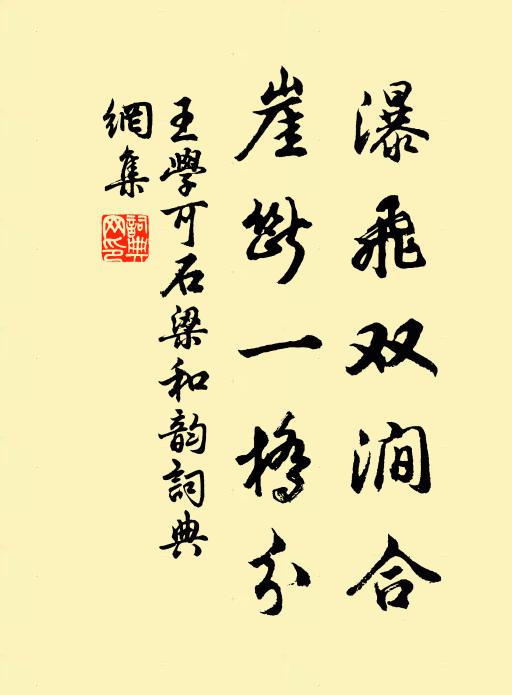 瀑飛双澗合
崖斷一橋分
王學可石梁和韵詞典
網集
詞典網印